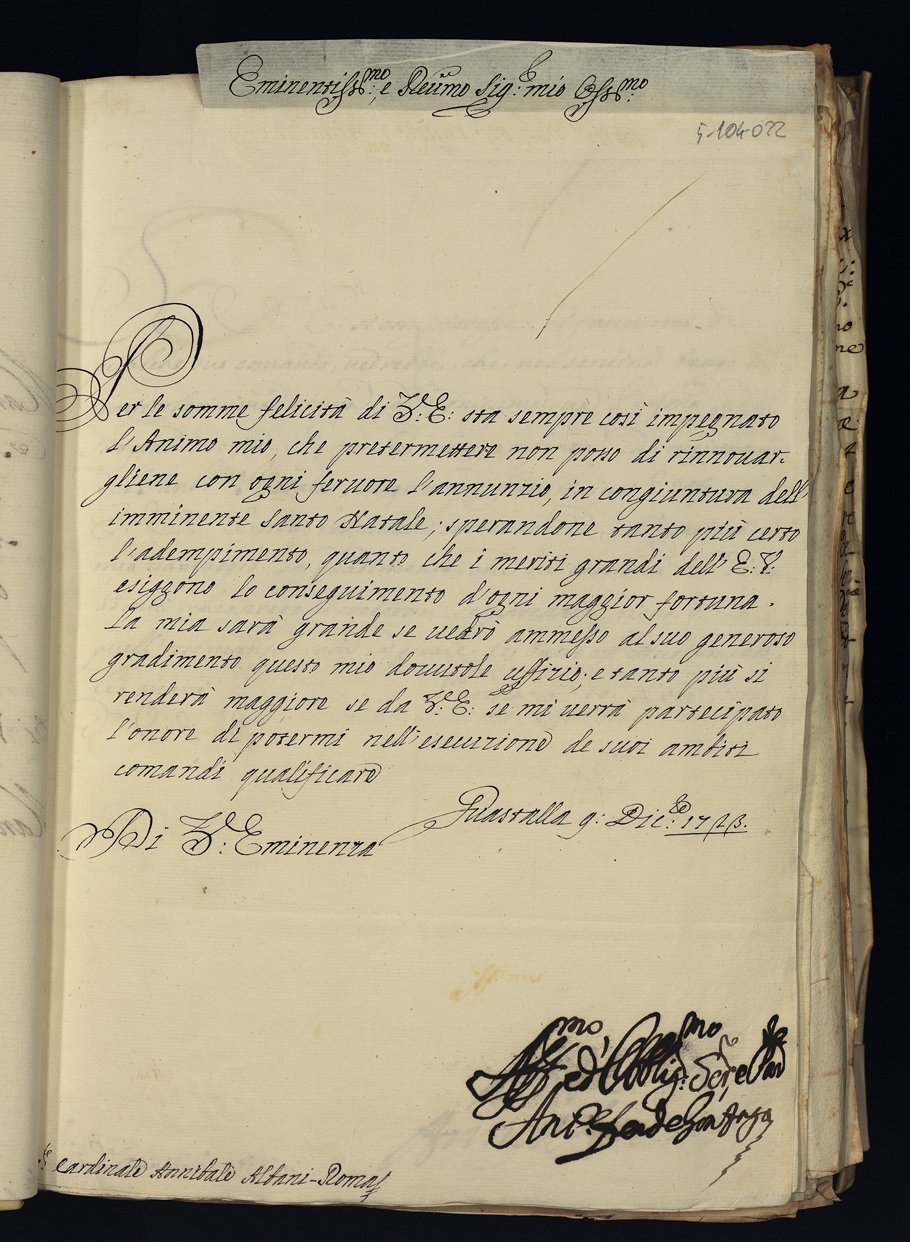 Eminentiss.mo, e Reumo Sig.e mio Oss.mo
5-104-022
Per le somme felicità di V.E: sta sempre così impegnato
l'Animo mio, che pretermettere non posso di rinnouar-
gliene con ogni feruore l'annunzio, in congiuntura dell'
imminente Santo Natale; sperandone tanto più certo
l'adempimento, quanto che i meriti grandi dell'E:V:
esiggono lo conseguimento d'ogni maggior fortuna.
La mia sarà grande se uedrò ammesso al suo generoso
gradimento questo mio douutole uffizio; e tanto più si
renderà maggiore se da V.E: se mi uerrà partecipato
l'onore di potermi nell'esecuzione de suoi ambiti
comandi qualificare
Guastalla 9: Dic.e 1713.
Di V.a Eminenza
Aff.mo ed Obblig.mo Ser.e e Par.
Ant.o Ferd Gonzaga
Cardinale Annibale Albani - Roma